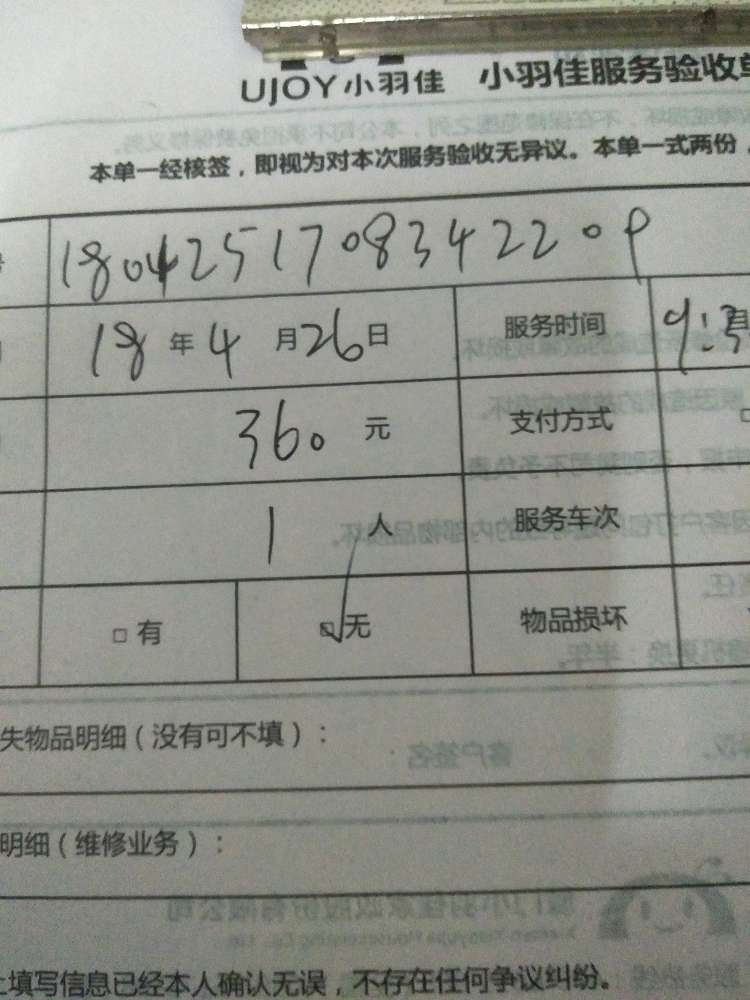 UJOY小羽佳 小羽佳服务验收单
本单一经核签，即视为对本次服务验收无异议。本单一式两份，
1804251708342209
18年4月26日 服务时间 9:3
360元 支付方式
1人 服务车次
□有 ☑无 物品损坏
失物品明细（没有可不填）：
明细（维修业务）：
上填写信息已经本人确认无误，不存在任何争议纠纷。